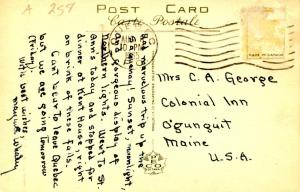 A 259
POST CARD
Carte Postale
Had marvelous trip up the
Saguenay! Sunset, moonlight,
and gorgeous display of
northern lights. Went to St.
Ann's today and stopped for
dinner at Kent House, right
on brink of these falls.
Can't bear to leave Quebec
but we are going tomorrow
(Friday).
With best wishes,
Mrs C. A. George
Colonial Inn
Ogunquit
Maine
U.S.A.